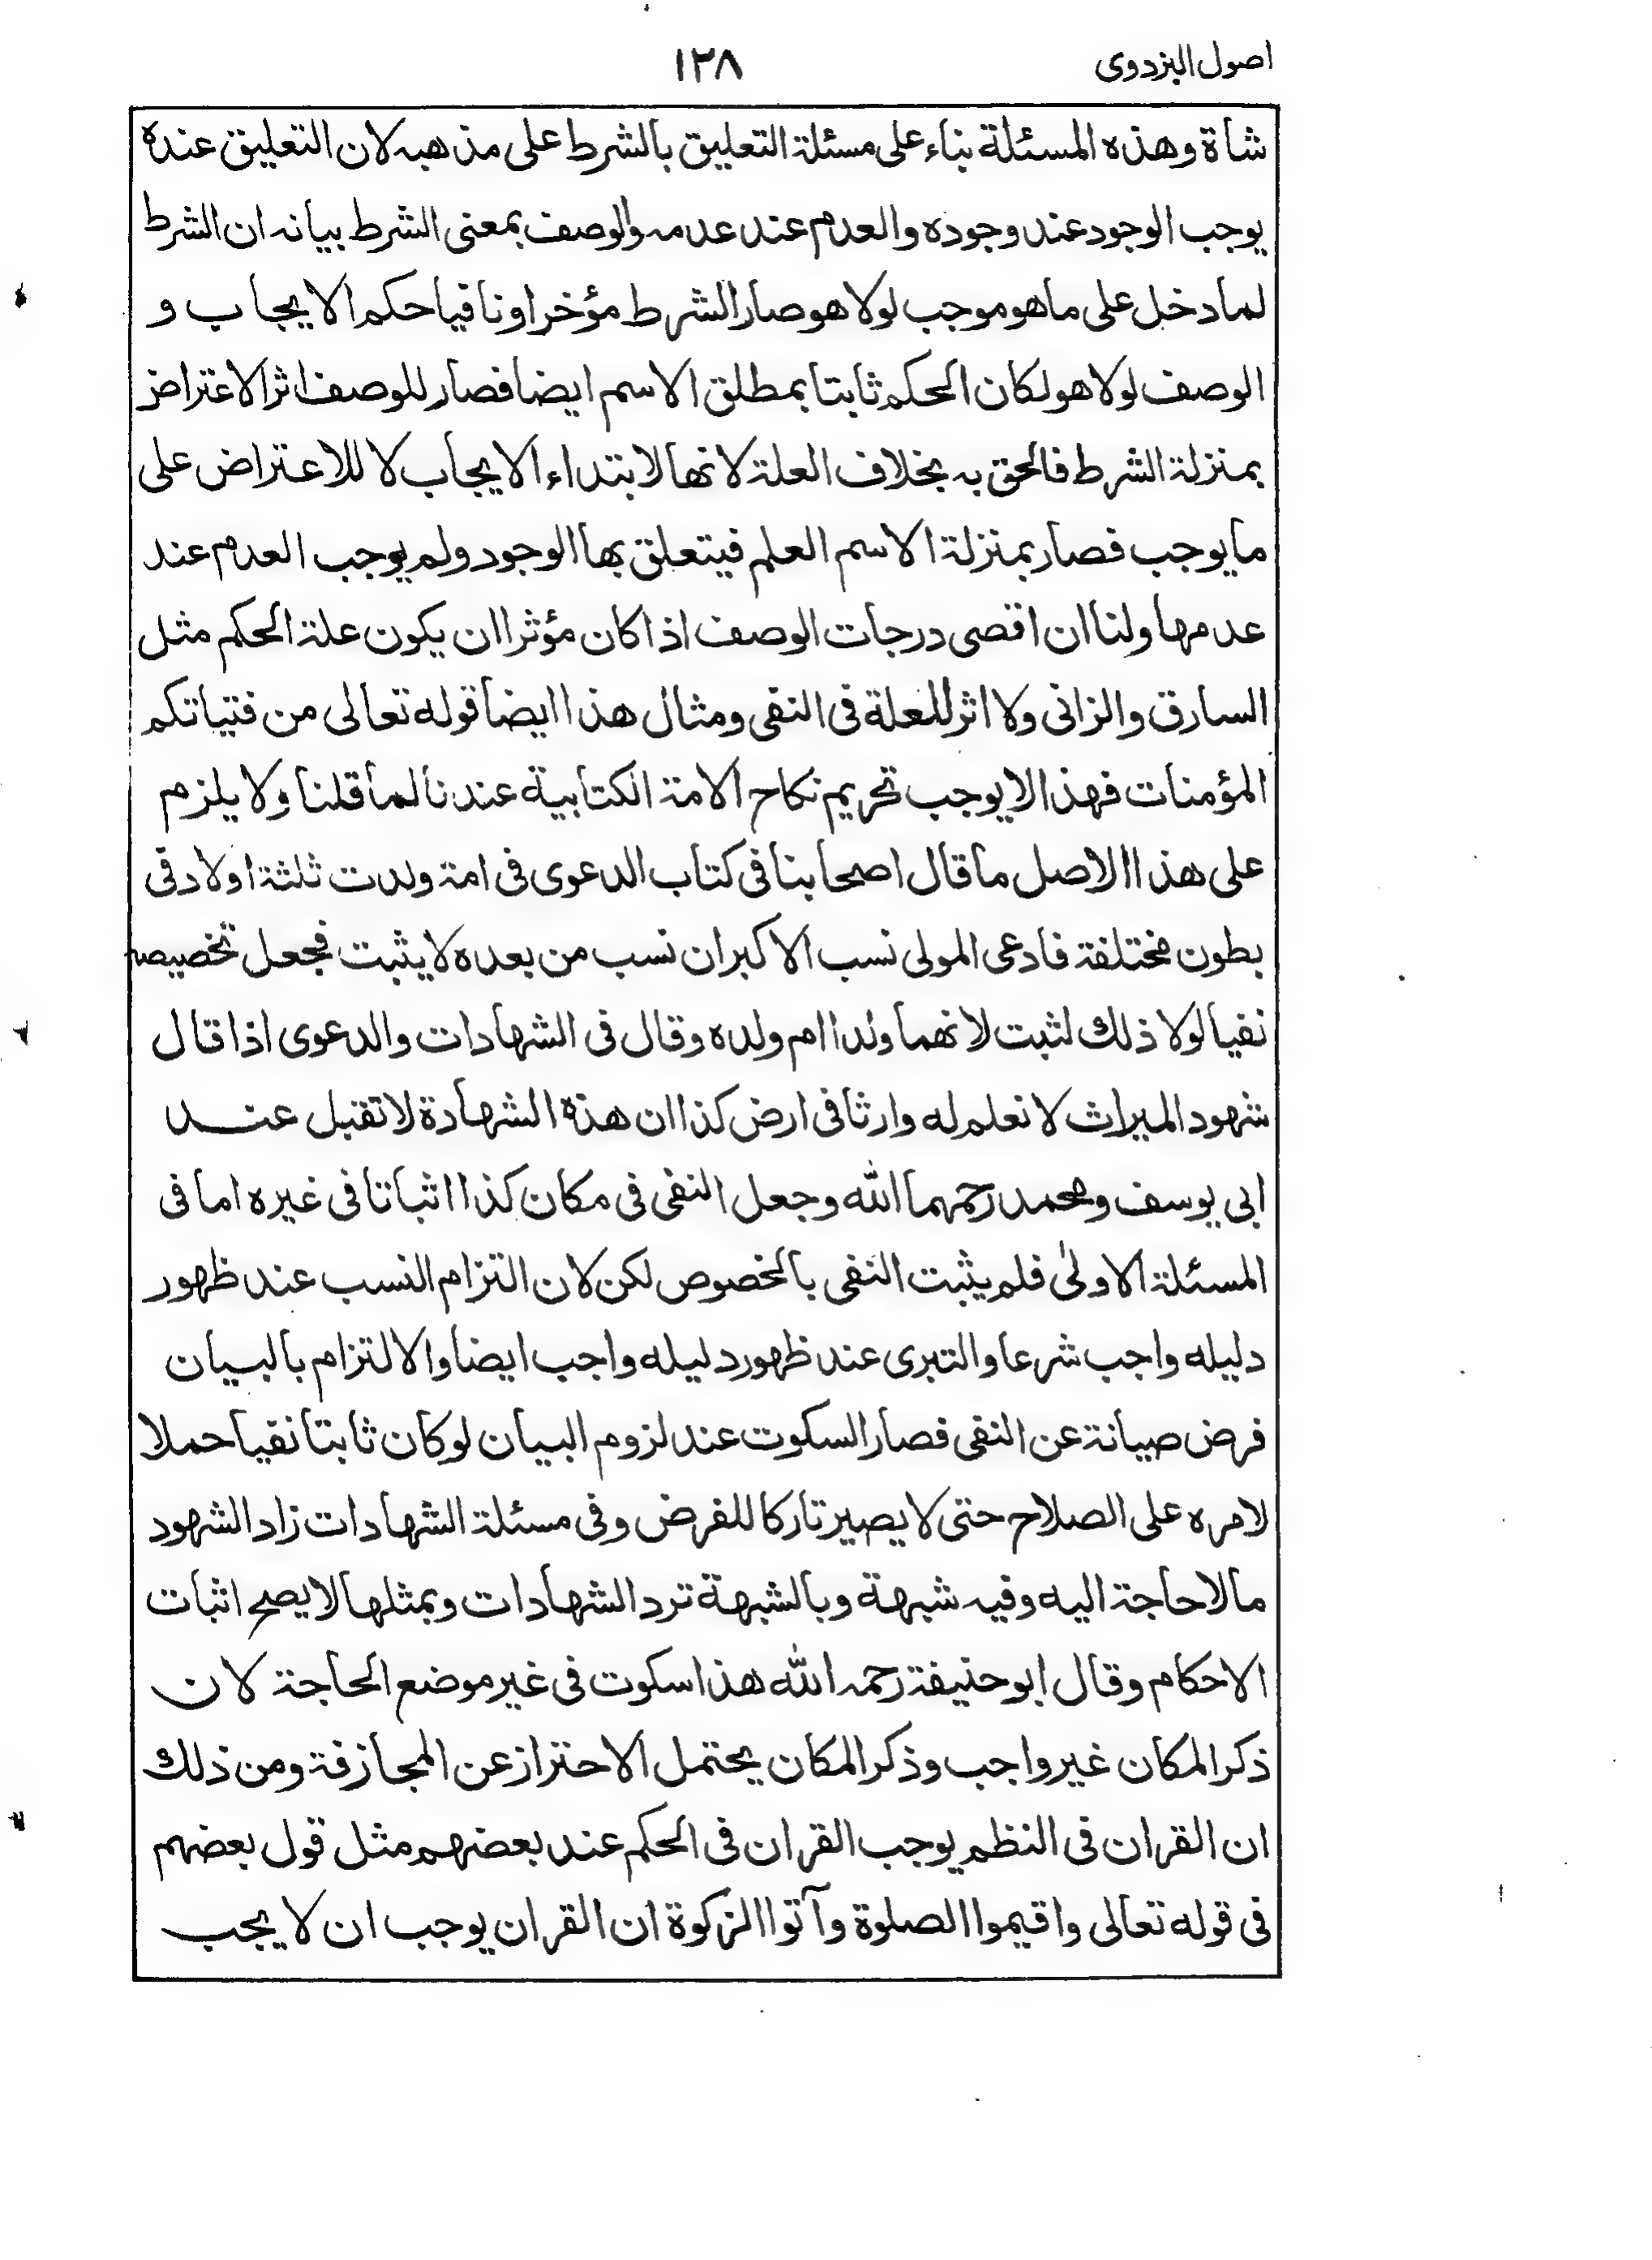 اصول البزدوى
١٣٨
شاة وهذه المسئلة بناء على مسئلة التعليق بالشرط على مذهبه لان التعليق عنده
يوجب الوجود عند وجوده والعدم عند عدمه والوصف بمعنى الشرط بيانه ان الشرط
لما دخل على ما هو موجب لولا هو صار الشرط مؤخرا ونافيا حكم الايجاب و
الوصف لولا هو لكان الحكم ثابتا بمطلق الاسم ايضا فصار للوصف اثر الاعتراض
بمنزلة الشرط فالحق به بخلاف العلة لانها لابتداء الايجاب لا للاعتراض على
ما يوجب فصار بمنزلة الاسم العلم فيتعلق بها الوجود ولم يوجب العدم عند
عدمها ولنا ان اقصى درجات الوصف اذا كان مؤثرا ان يكون علة الحكم مثل
السارق والزانى ولا اثر للعلة فى النفى ومثال هذا ايضا قوله تعالى من فتياتكم
المؤمنات فهذا لا يوجب تحريم نكاح الامة الكتابية عندنا لما قلنا ولا يلزم
على هذا الاصل ما قال اصحابنا فى كتاب الدعوى فى امة ولدت ثلثة اولاد فى
بطون مختلفة فادعى المولى نسب الاكبر ان نسب من بعده لا يثبت فجعل تخصيصه
نفيا لولا ذلك لثبت لانهما ولدا ام ولده وقال فى الشهادات والدعوى اذا قال
شهود الميراث لا نعلم له وارثا فى ارض كذا ان هذه الشهادة لا تقبل عند
ابى يوسف ومحمد رحمهما الله وجعل النفى فى مكان كذا اثباتا فى غيره اما فى
المسئلة الاولى فلم يثبت النفى بالخصوص لكن لان التزام النسب عند ظهور
دليله واجب شرعا والتبرى عند ظهور دليله واجب ايضا والالتزام بالبيان
فرض صيانة عن النفى فصار السكوت عند لزوم البيان لو كان ثابتا نفيا حملا
لامره على الصلاح حتى لا يصير تاركا للفرض وفى مسئلة الشهادات زاد الشهود
مالا حاجة اليه وفيه شبهة وبالشبهة ترد الشهادات وبمثلها لا يصح اثبات
الاحكام وقال ابو حنيفة رحمه الله هذا سكوت فى غير موضع الحاجة لان
ذكر المكان غير واجب وذكر المكان يحتمل الاحتراز عن المجازفة ومن ذلك
ان القران فى النظم يوجب القران فى الحكم عند بعضهم مثل قول بعضهم
فى قوله تعالى واقيموا الصلوة وآتوا الزكوة ان القران يوجب ان لا يجب